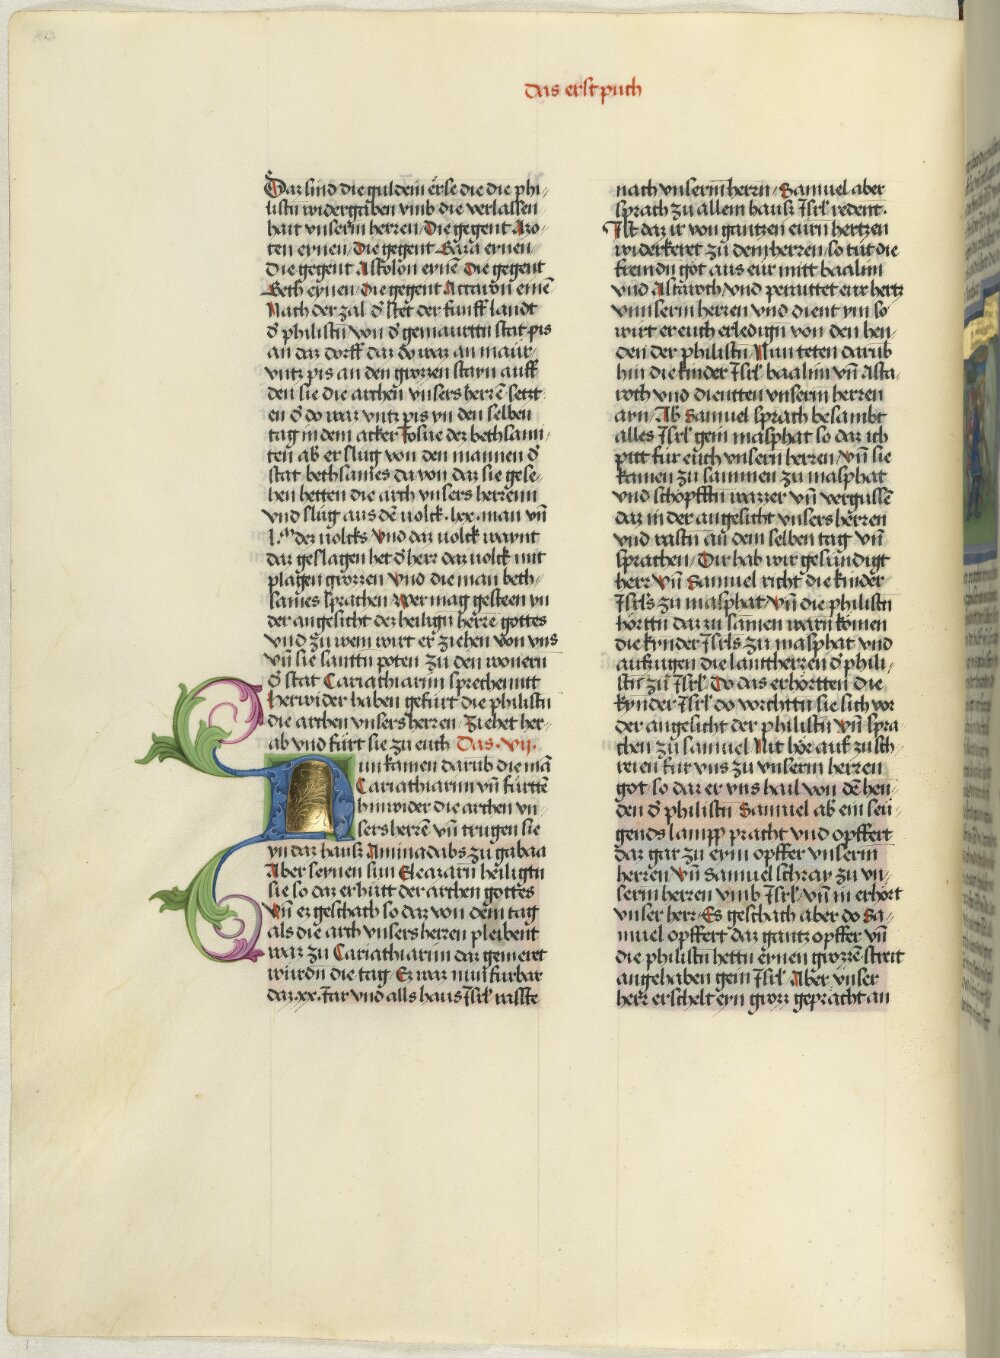 das erst puch
Daz sind die guldein erse die die phi-
listn widergaben vmb die verlassen-
hait vnserm herren / Die gegent Azo-
ten eynen / Die gegent Gaza eynen /
Die gegent Askolon eynē Die gegent
Geth eynen / Die gegent Accaron einē
Nach der zal d̾ stet der funff landt
d̾ philistn von d̾ gemaurttn stat pis
an daz dorff daz do waz an maur /
vntz pis an den grozzen stayn auff
den sie die archen vnsers herrē setzt-
en d̾ do waz vntz pis yn den selben
tag in dem acker Josue dez bethsami-
ten ab er slug von den mannen d̾
stat bethsames da von daz sie gese-
hen hetten die arch vnsers herrenn
vnd slug aus dē volck . lxx . man vn̄
l.m dez volcks Vnd daz volck waynt
daz geslagen het d̾ herr daz volck mit
plagen grozzen Vnd die man beth-
sames sprachen Wer mag gesteen yn
der angesicht dez heilign herre gottes
vnd zu wem wirt er ziehen von vns
vn̄ sie santtn poten zu den wonern
d̾ stat Cariathiarim sprechentt
herwider haben gefurt die philistn
die archen vnsers herren Ziehet her-
ab vnd furt sie zu euch Das . vij .
Nun kamen darub die mā
Cariathiarim vn̄ furttē
hinwider die archen vn-
sers herrē vn̄ trugen sie
yn daz hausz Aminadabs zu gabaa
Aber seynen sun Eleazarn heiligtn
sie so daz er hutt der archen gottes
Vn̄ ez geschach so daz von dem tag
als die arch vnsers herren pleibent
waz zu Cariathiarim daz gemert
wurdn die tag Ez waz nun furbar
daz . xx . Jar vnd alls haus Isrl rasste
nach vnserm herrn / Samuel aber
sprach zu allem hausz Isrl redent .
Ist daz ir von gantzen eurn hertzen
widerkeret zu dem herren so tut die
fremdn got aus eur mitt baalim
vnd Astaroth vnd peraittet eur hertz
vnnserm herren vnd dient ym so
wirt er euch erledign von den hen-
den der philistn / Nun teten darub
hin die kinder Isrl baalim vn̄ Asta-
roth vnd dientten vnserm herren
ayn Ab Samuel sprach besambt
alles Isrl gein masphat so daz ich
pitt fur euch vnsern herren / Vn̄ sie
kamen zu sammen zu masphat
vnd schopfftn wazzer vn̄ vergussē
daz in der angesicht vnsers herren
vnd vastn an dem selben tag vn̄
sprachen / Dir hab wir gesundigt
herr Vn̄ Samuel richt die kinder
Isrls zu masphat / Vn̄ die philistn
horttn daz zu samen warn komen
die kynder Isrls zu masphat vnd
aufzugen die lantherren d̾ phili-
stn zu Isrl Do das erhortten die
kynder Isrl do vorchttn sie sich vor
der angesicht der philistn Vn̄ spra
chen zu samuel Nit hor auf zu sch-
reien fur vns zu vnserm herren
got so daz er vns hail von dē hen-
den d̾ philistn Samuel ab ein seu-
gends lampp pracht vnd opffert
daz gar zu eym opffer vnserm
herren Vn̄ Samuel schray zu vn-
serm herren vmb Isrl / vn̄ in erhort
vnser herr / Es geschach aber do Sa-
muel opffert daz gantz opffer vn̄
die philistn hettn ernen grozzē streit
angehaben gein Isrl Aber vnser
herr erschelt eyn grozz gepracht an